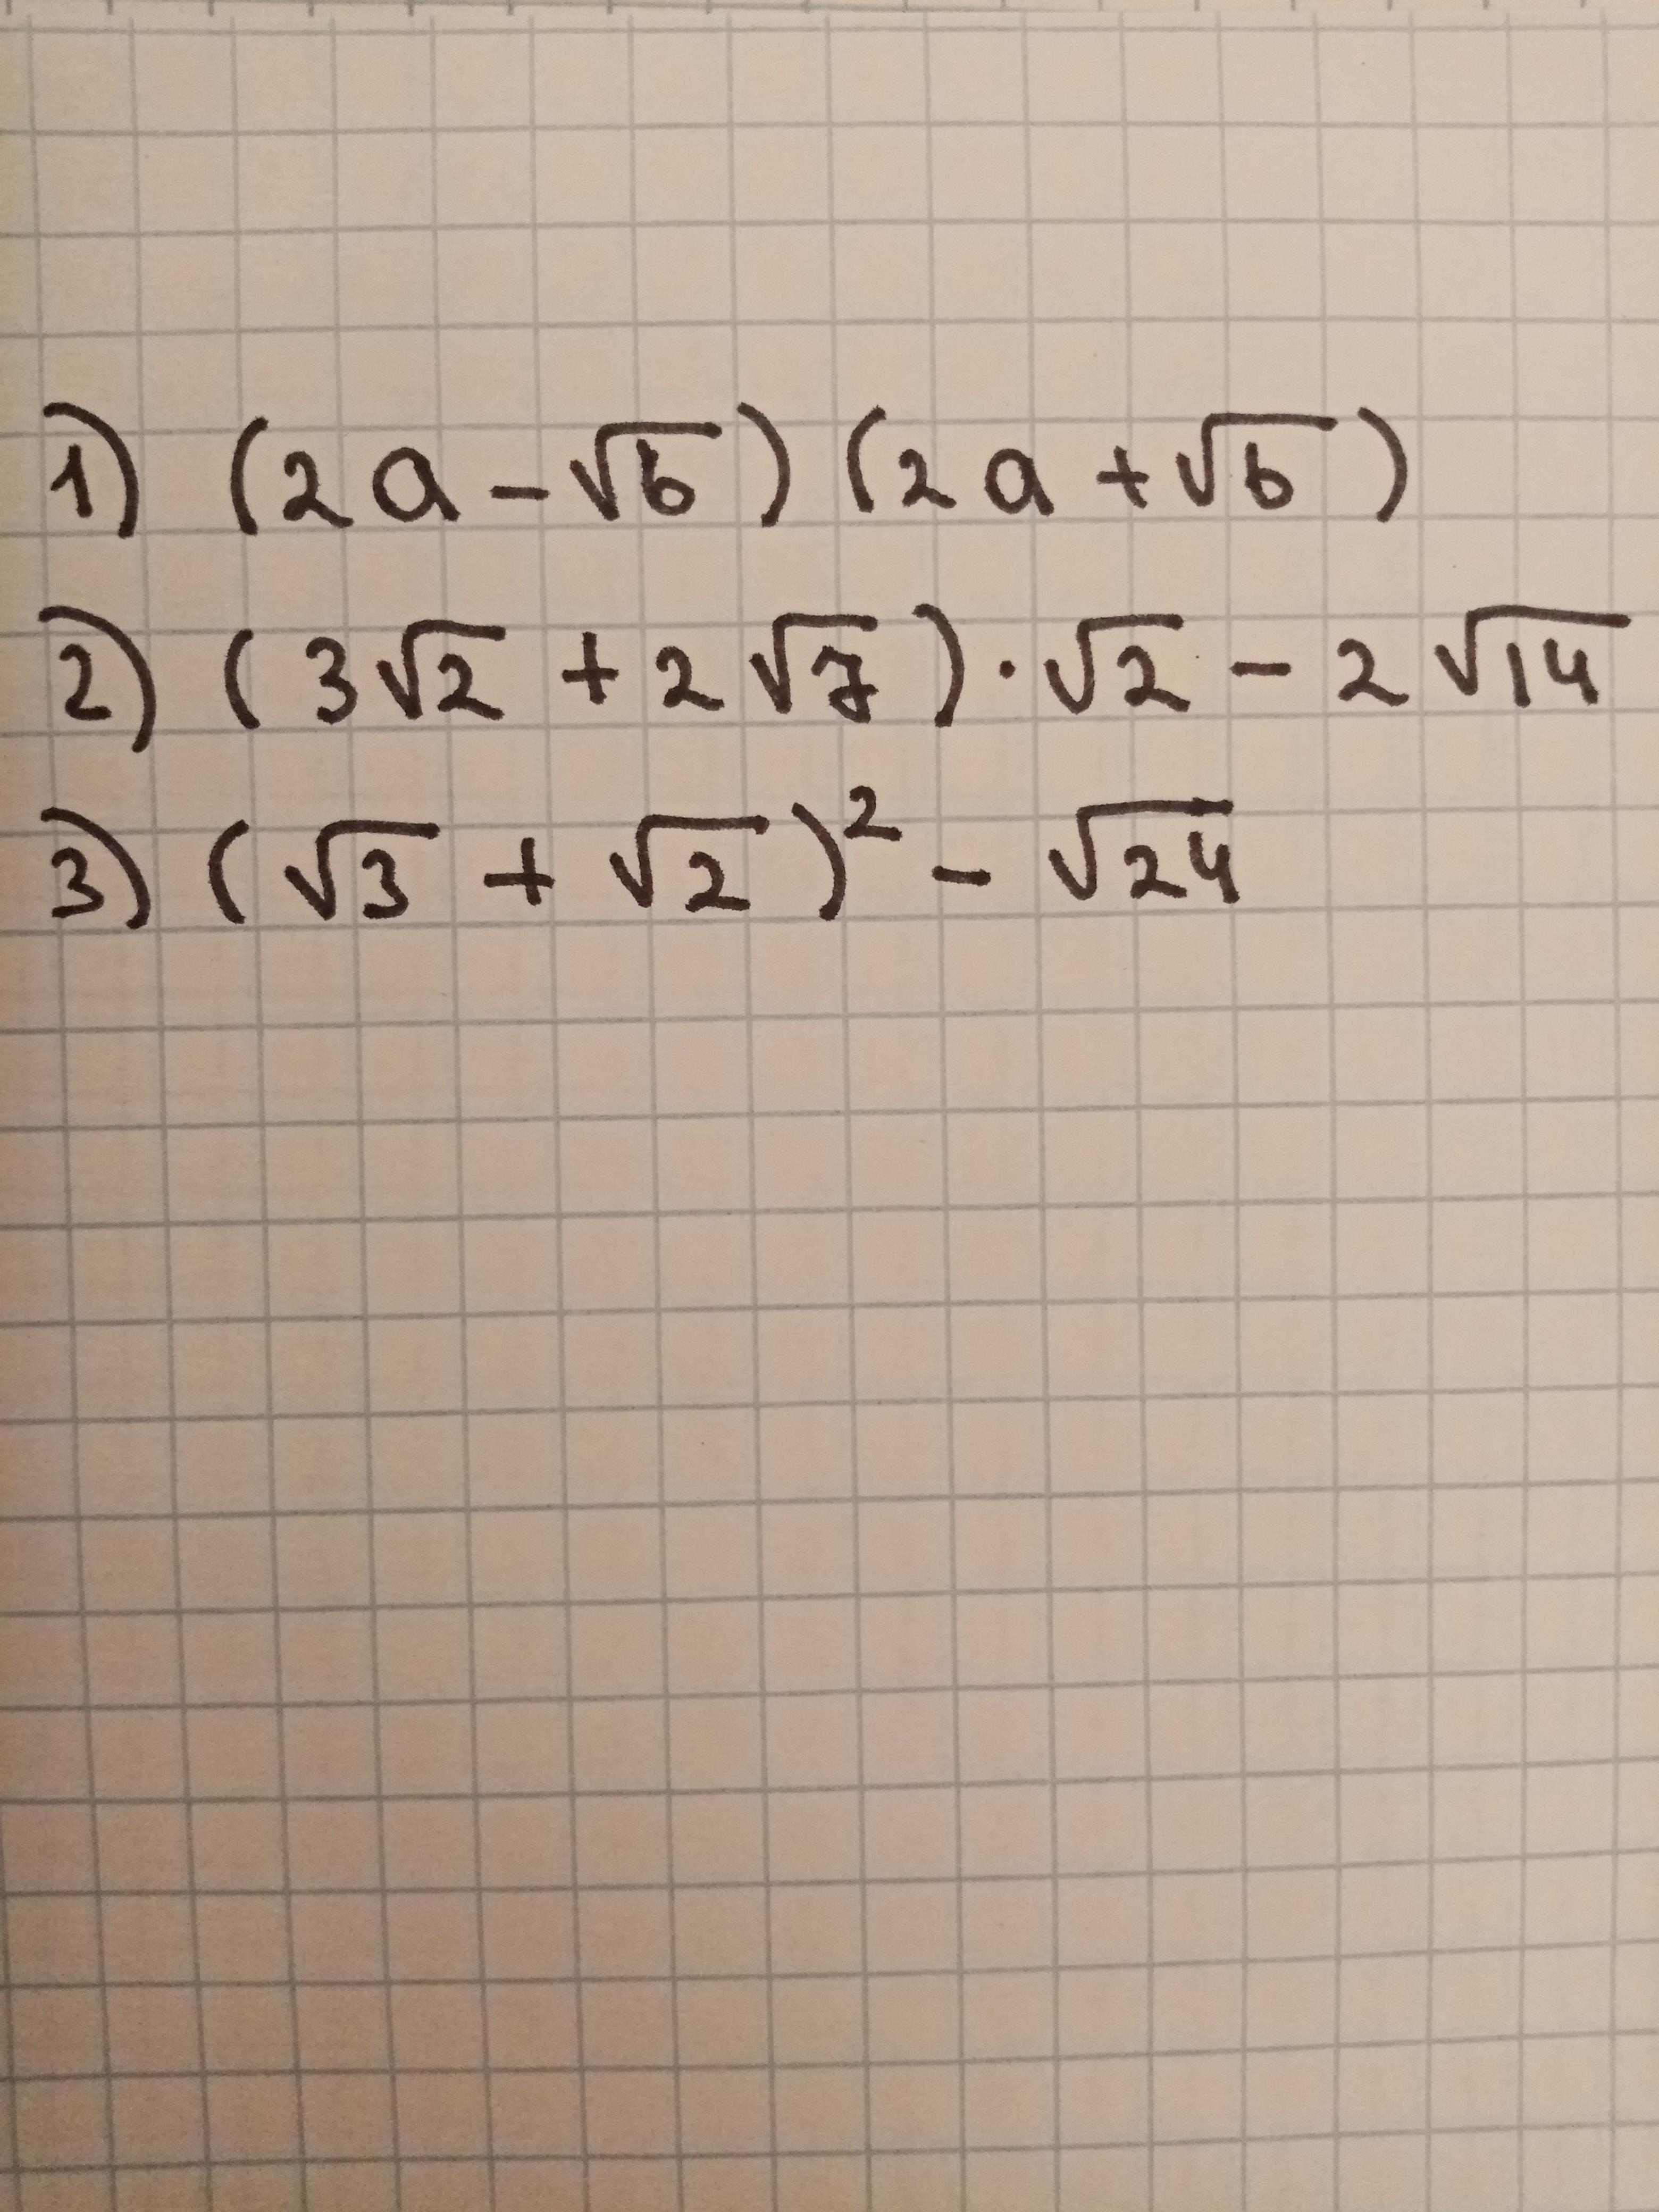 1) (2a - √b) (2a + √b)
2) (3√2 + 2√7) · √2 - 2√14
3) (√3 + √2)² - √24